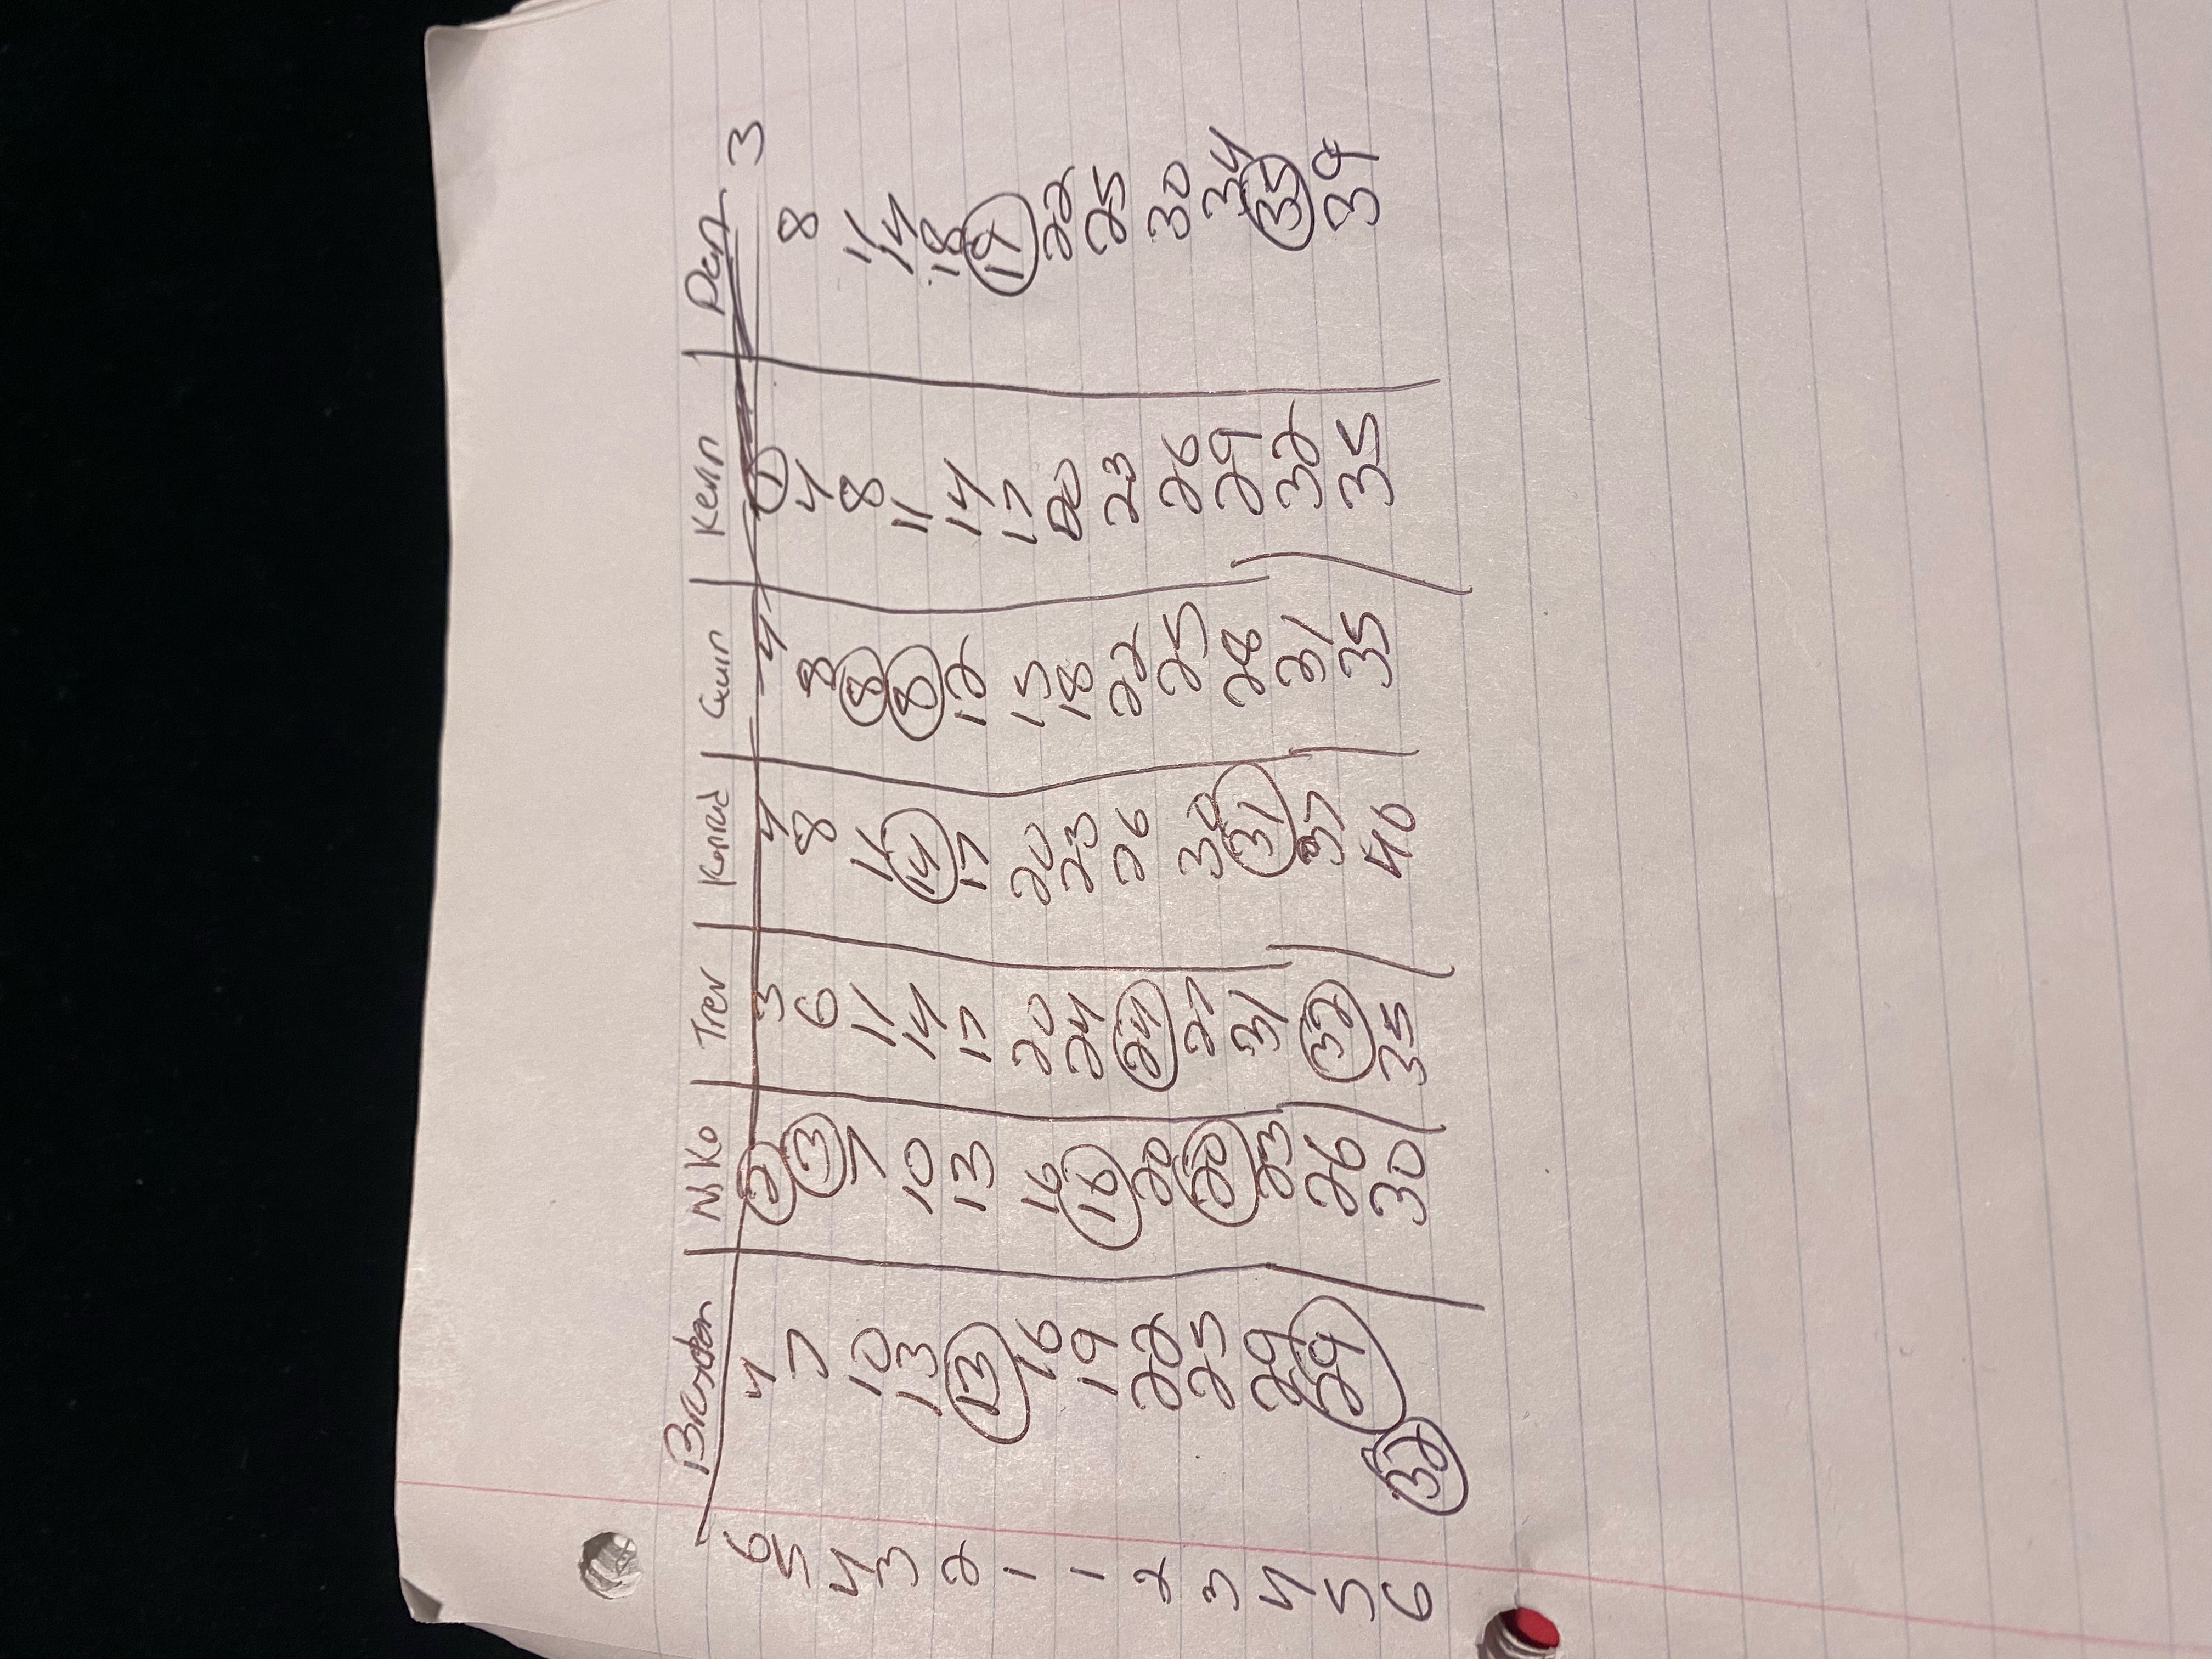 Brayden Niko Trev Konrad Quin Kevin Dan
6 4 2 3 4 4 1 3
5 7 3 6 8 8 4 8
4 10 7 11 11 8 8 11
3 13 10 14 14 8 11 14
2 13 13 17 17 12 14 18
1 16 16 20 20 15 17 19
1 19 16 24 23 18 20 22
2 22 20 24 26 22 23 25
3 25 20 27 30 25 26 30
4 29 23 31 31 28 29 34
5 29 26 32 37 31 32 35
6 32 30 35 40 35 35 39